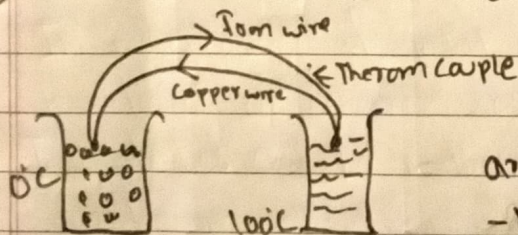 Iron wire
Therom Couple
Copper wire
0°C
100°C
an